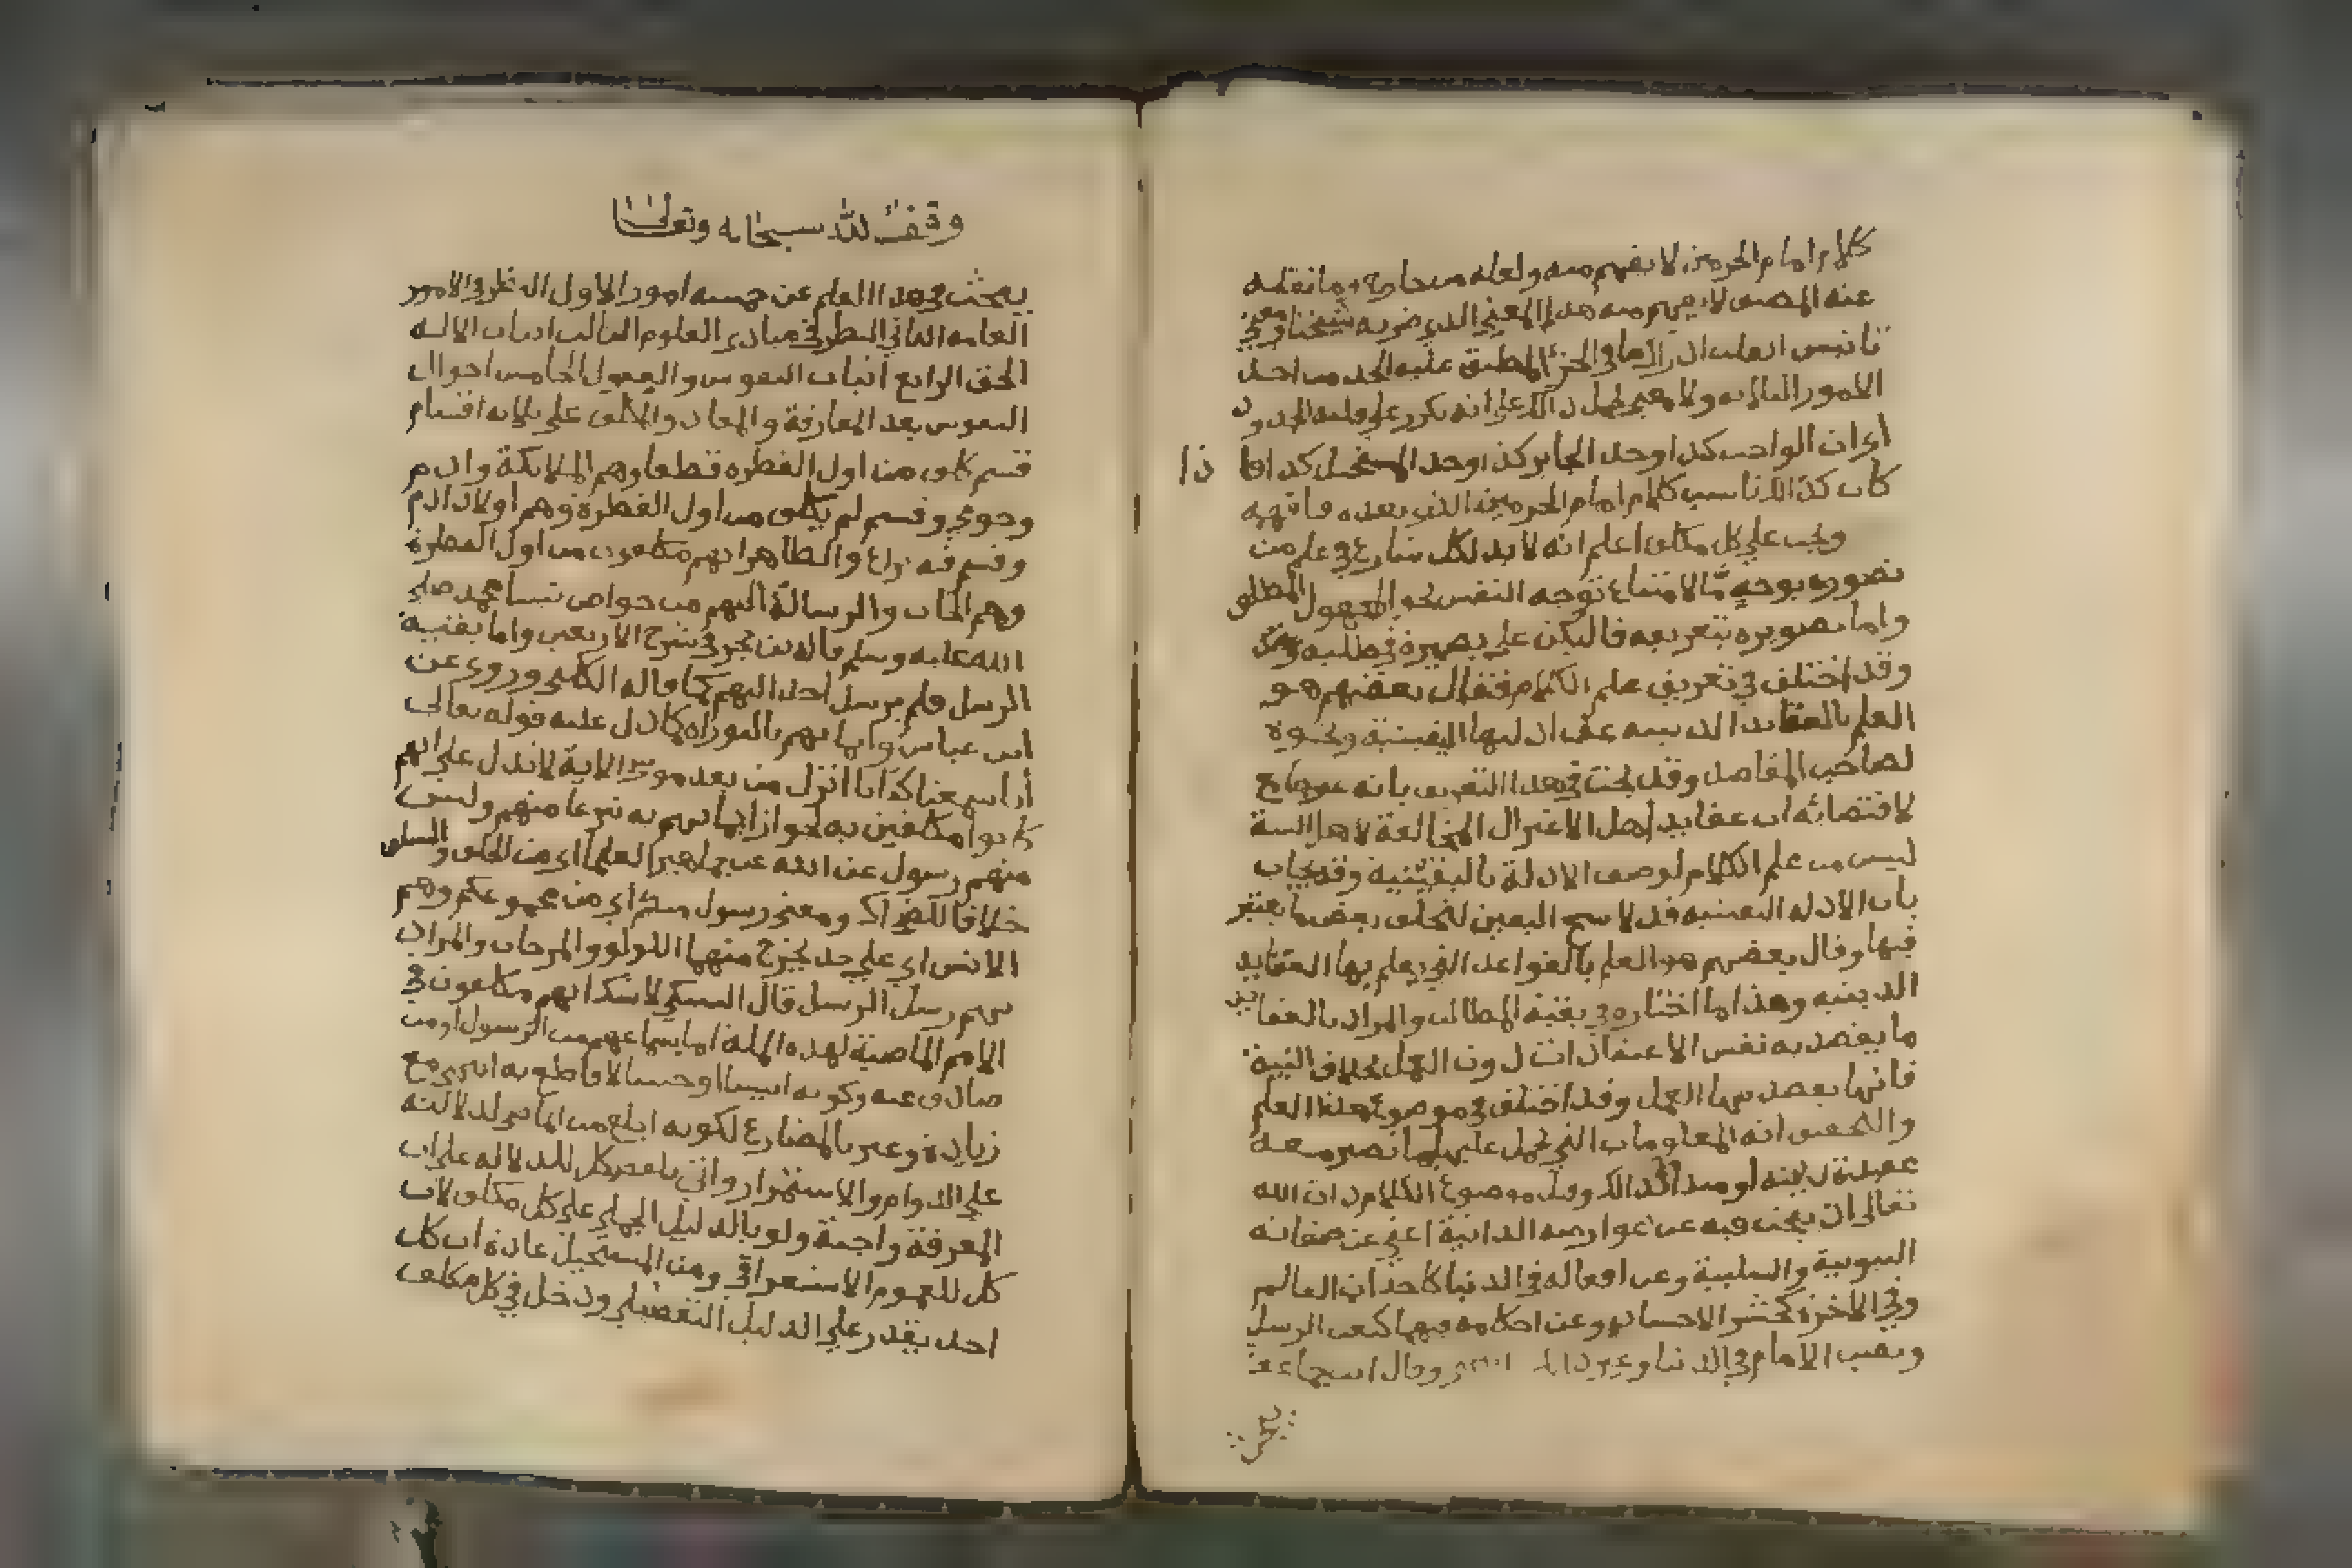 كلام امام الحرمين لا يفهم منه ولعله من خارج وما نقله
عنه المصنف لا يفهم منه هذا المعنى الذي ضربه شيخنا وفي
ثانيس العلم ان الجز المطبق عليه الحد من احد
الامور الثلاثه ولا يحمل ذلك على انه تكرر على قلبه الحدود
اي ان الواجب كذا وحد الجايز كذا وحد المستحيل كذا فاذا
كان كذلك ناسب كلام امام الحرمين الذي بعده فافهم
ويجب على كل مكلف اعلم انه لا بد لكل شارع في علم من
تصوره بوجهٍ مّا لامتناع توجه النفس نحو المجهول المطلق
واما تصويره بتعريفه فاليكن على بصيرة في طلبه
وقد اختلف في تعريف علم الكلام فقال بعضهم هو
العلم بالعقايد الدينيه عن ادلتها اليقينية ونحوه
لصاحب المقاصد وقد بحث في هذا التعريف بانه غير جامع
لاقتضائه ان عقايد اهل الاعتزال المخالفة لاهل السنة
ليس من علم الكلام لوصف الادلة باليقينية وقد يجاب
بان الادله اليقينيه قد لا تنتج اليقين لتخلف بعض ما يعتبر
فيها وقال بعضهم هو العلم بالقواعد التي يعلم بها العقايد
الدينيه وهذا ما اختاره في بقية المطالب والمراد بالعقايد
ما يقصد به نفس الاعتقادات دون العمل بخلاف النية
فانها يقصد بها العمل وقد اختلف في موضوع هذا العلم
والتحقيق انه المعلومات التي يحمل عليها ما تصير معه
عقيدة دينيه او مبدا لذلك وقيل موضوع الكلام ذات الله
تعالى ان يبحث فيه عن عوارضه الذاتية اعني عن صفاته
الثبوتية والسلبية وعن افعاله في الدنيا كاحداث العالم
وفي الاخرة كحشر الاجساد وعن احكامه فيهما كبعث الرسل
ونصب الامام في الدنيا وغير ذلك وقال جماعة
يبحث
وقف لله سبحانه وتعالى
يبحث في هذا العلم عن خمسه امور الاول النظر في الامور
العامه الثاني النظر في مبادي العلوم الثالث اثبات الاله
الحق الرابع اثبات النفوس والعقول الخامس احوال
النفوس بعد المفارقة والمعاد والمكلف على ثلاثه اقسام
قسم كلف من اول الفطره قطعا وهم الملائكة وادم
وحوى وقسم لم يكلف من اول الفطرة وهم اولاد ادم
وقسم فيه نزاع والظاهر انهم مكلفون من اول الفطرة
وهم الجان والرسالة اليهم من خواص نبينا محمد صلى
الله عليه وسلم قاله ابن حجر في شرح الاربعين واما بقية
الرسل فلم يرسل احد اليهم كما قاله الكلبي وروي عن
ابن عباس وايمانهم بالتوراه كما دل عليه قوله تعالى
انا سمعنا كتابا انزل من بعد موسى الاية لا تدل على انهم
كانوا مكلفين به لجواز ايمانهم به تبرعا منهم وليس
منهم رسول عن الله عند جماهير العلما اي من الخلف والسلف
خلافا للضحاك ومعنى رسول منكم اي من مجموعكم وهم
الانس اي على حد يخرج منهما اللولو والمرجان والمراد
بهم رسل الرسل قال السبكي لا شك انهم مكلفون في
الامم الماضية لهذه المله اما بسماعهم من الرسول او من
صادق عنه وكونه انسيا او جنيا لا قاطع به انتهى مع
زيادة وعبر بالمضارع لكونه ابلغ من الماضي لدلالته
على الدوام والاستمرار واتى بلفظ كل للدلاله على ان
المعرفة واجبة ولو بالدليل الجملي على كل مكلف لان
كل للعموم الاستغراقي ومن المستحيل عادة ان كل
احد يقدر على الدليل التفصيلي ودخل في كل مكلف